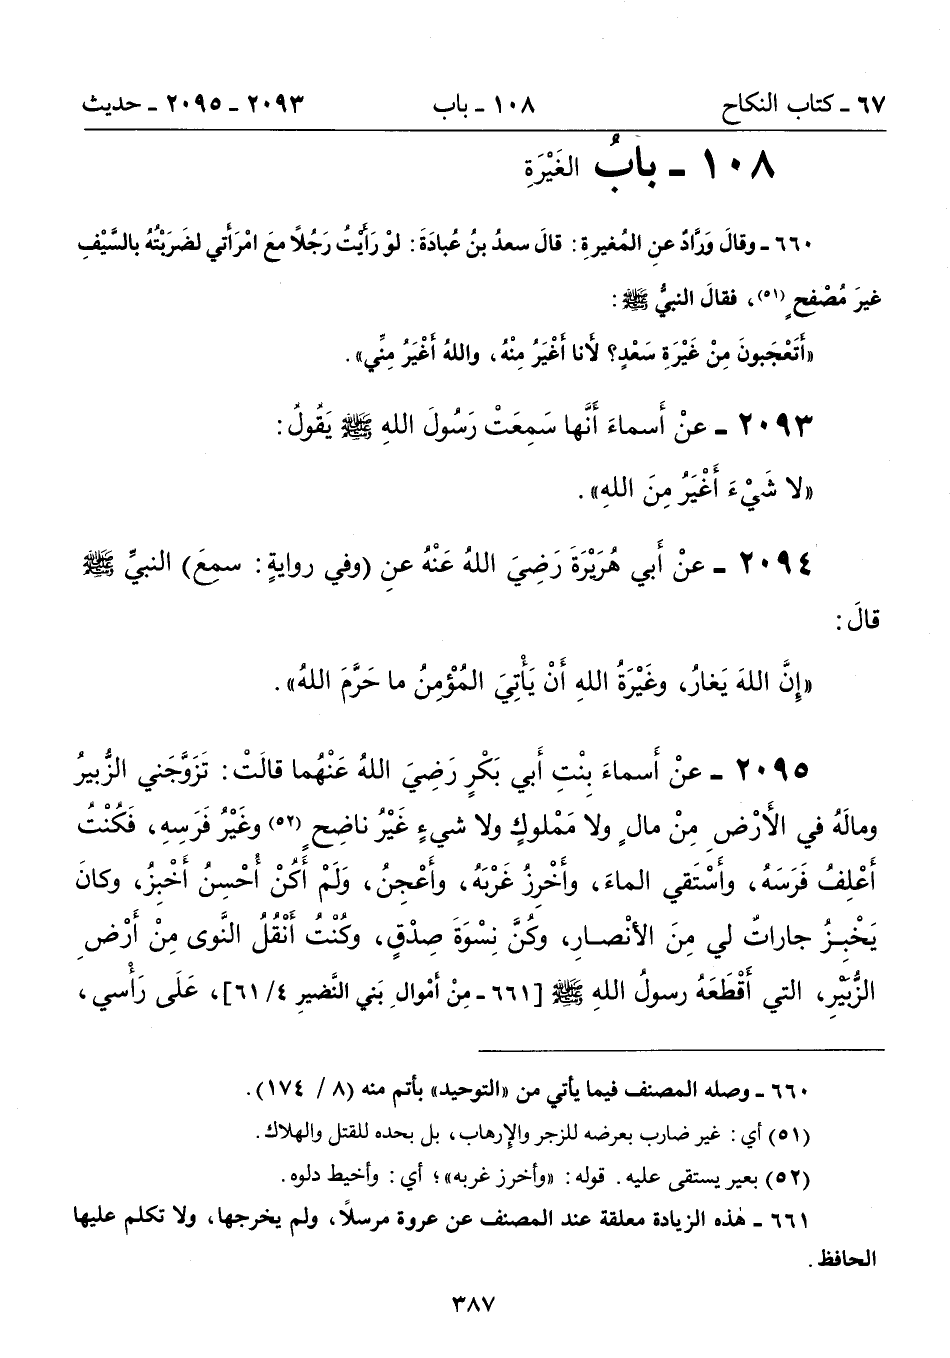 ٦٧ ـ كتاب النكاح ١٠٨ ـ باب ٢٠٩٣ ـ ٢٠٩٥ ـ حديث
١٠٨ ـ بابُ الغَيْرَةِ
٦٦٠ ـ وقالَ وَرَّادٌ عنِ المُغيرةِ : قالَ سعدُ بنُ عُبادَةَ : لوْ رَأَيْتُ رَجُلاً معَ امْرَأَتي لضَرَبْتُهُ بالسَّيْفِ
غيرَ مُصْفحٍ (٥١)، فقالَ النبيُّ ﷺ :
«أَتَعْجَبونَ مِنْ غَيْرَةِ سَعْدٍ؟ لَأَنا أَغْيَرُ مِنْهُ، واللهُ أَغْيَرُ مِنِّي».
٢٠٩٣ ـ عنْ أَسماءَ أَنَّها سَمِعَتْ رَسُولَ اللهِ ﷺ يَقُولُ :
«لا شَيْءَ أَغْيَرُ مِنَ اللهِ».
٢٠٩٤ ـ عنْ أَبي هُرَيْرَةَ رَضِيَ اللهُ عَنْهُ عنِ (وفي روايةٍ : سمعَ) النبيِّ ﷺ
قالَ :
«إِنَّ اللهَ يَغارُ، وغَيْرَةُ اللهِ أَنْ يَأْتِيَ المُؤْمِنُ ما حَرَّمَ اللهُ».
٢٠٩٥ ـ عنْ أَسماءَ بِنْتِ أَبي بَكْرٍ رَضِيَ اللهُ عَنْهُما قالَتْ : تَزَوَّجَني الزُّبيرُ
ومالَهُ في الأَرْضِ مِنْ مالٍ ولا مَمْلوكٍ ولا شيءٍ غَيْرُ ناضِحٍ (٥٢) وغَيْرُ فَرَسِهِ، فَكُنْتُ
أَعْلِفُ فَرَسَهُ، وأَسْتَقي الماءَ، وأَخْرِزُ غَرْبَهُ، وأَعْجنُ، ولَمْ أَكُنْ أُحْسِنُ أَخْبِزُ، وكانَ
يَخْبِزُ جاراتٌ لي مِنَ الأنْصارِ، وكُنَّ نِسْوَةَ صِدْقٍ، وكُنْتُ أَنْقُلُ النَّوى مِنْ أَرْضِ
الزُّبَيْرِ، التي أَقْطَعَهُ رسولُ اللهِ ﷺ [٦٦١ ـ مِنْ أَموالِ بَني النَّضيرِ ٤/ ٦١]، عَلَى رَأْسي،
٦٦٠ ـ وصله المصنف فيما يأتي من «التوحيد» بأتم منه (٨ / ١٧٤).
(٥١) أي : غير ضارب بعرضه للزجر والإرهاب، بل بحده للقتل والهلاك.
(٥٢) بعير يستقى عليه. قوله : «وأخرز غربه»؛ أي : وأخيط دلوه.
٦٦١ ـ هذه الزيادة معلقة عند المصنف عن عروة مرسلاً، ولم يخرجها، ولا تكلم عليها
الحافظ.
٣٨٧